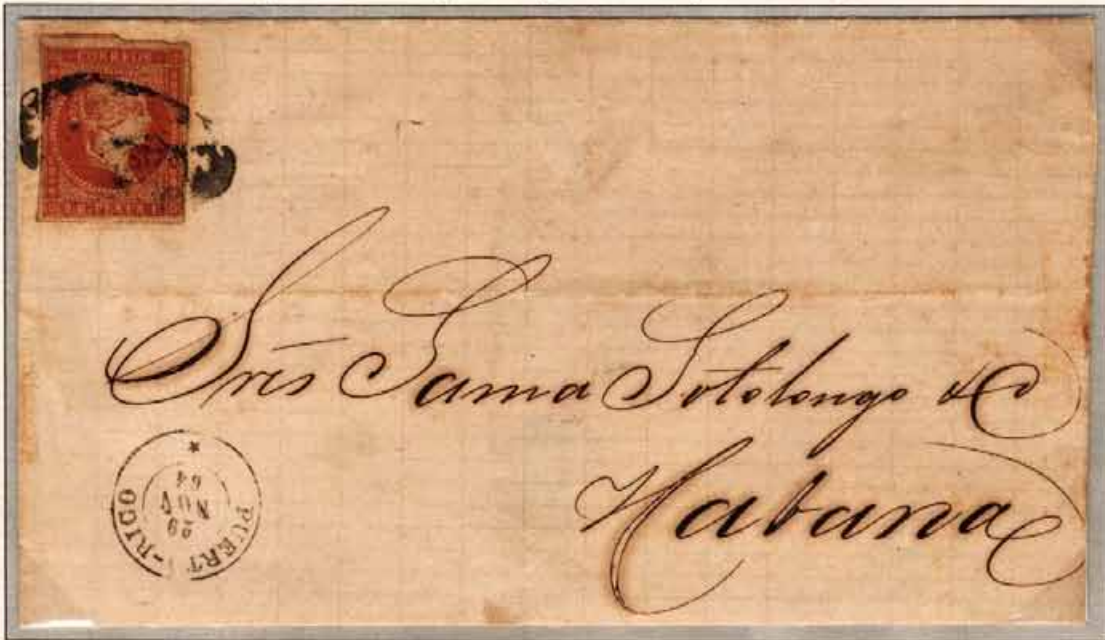 CORREOS
Sres Sama Sotolongo & Co
Habana
PUERTO-RICO
29
NOV
64